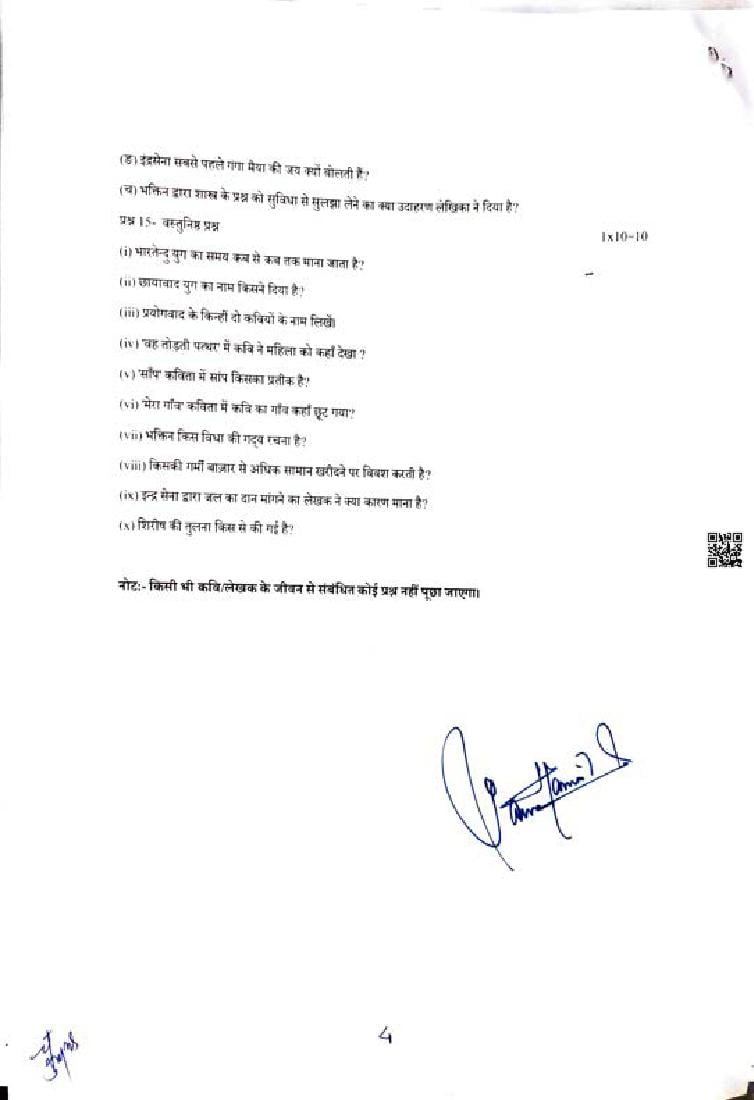 (ङ) इंद्रसेना सबसे पहले गंगा मैया की जय क्यों बोलती है?
(च) भक्तिन द्वारा शास्त्र के प्रश्न को सुविधा से सुलझा लेने का क्या उदाहरण लेखिका ने दिया है?
प्रश्न 15- वस्तुनिष्ठ प्रश्न 1x10=10
(i) भारतेन्दु युग का समय कब से कब तक माना जाता है?
(ii) छायावाद युग का नाम किसने दिया है?
(iii) प्रयोगवाद के किन्हीं दो कवियों के नाम लिखें।
(iv) 'वह तोड़ती पत्थर' में कवि ने महिला को कहाँ देखा ?
(v) 'साँप' कविता में सांप किसका प्रतीक है?
(vi) 'मेरा गाँव' कविता में कवि का गाँव कहाँ छूट गया?
(vii) भक्तिन किस विधा की गद्य रचना है?
(viii) किसकी गर्मी बाज़ार से अधिक सामान खरीदने पर विवश करती है?
(ix) इन्द्र सेना द्वारा जल का दान मांगने का लेखक ने क्या कारण माना है?
(x) शिरीष की तुलना किस से की गई है?
नोट:- किसी भी कवि/लेखक के जीवन से संबंधित कोई प्रश्न नहीं पूछा जाएगा।
4